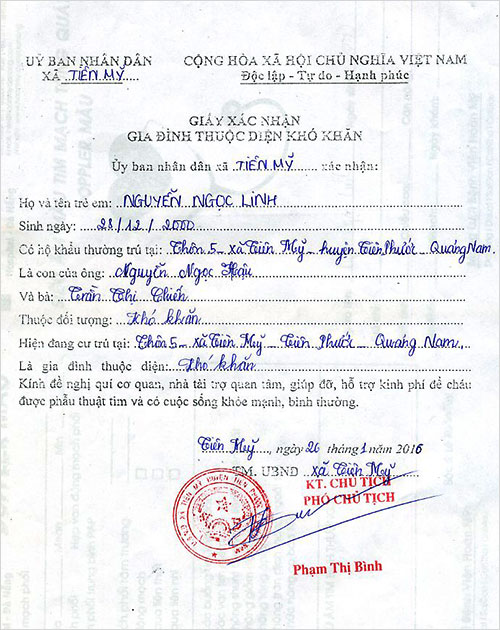 ỦY BAN NHÂN DÂN
XÃ TIÊN MỸ
CỘNG HÒA XÃ HỘI CHỦ NGHĨA VIỆT NAM
Độc lập - Tự do - Hạnh phúc
GIẤY XÁC NHẬN
GIA ĐÌNH THUỘC DIỆN KHÓ KHĂN
Ủy ban nhân dân xã TIÊN MỸ xác nhận:
Họ và tên trẻ em: NGUYỄN NGỌC LINH
Sinh ngày: 28/12/2000
Có hộ khẩu thường trú tại: Thôn 5 - xã Tiên Mỹ - huyện Tiên Phước - Quảng Nam.
Là con của ông: Nguyễn Ngọc Hậu
Và bà: Trần Thị Chiến
Thuộc đối tượng: Khó khăn
Hiện đang cư trú tại: Thôn 5 - xã Tiên Mỹ - Tiên Phước - Quảng Nam
Là gia đình thuộc diện: Khó khăn
Kính đề nghị quí cơ quan, nhà tài trợ quan tâm, giúp đỡ, hỗ trợ kinh phí để cháu
được phẫu thuật tim và có cuộc sống khỏe mạnh, bình thường.
Tiên Mỹ, ngày 26 tháng 1 năm 2016
TM. UBND xã Tiên Mỹ
KT. CHỦ TỊCH
PHÓ CHỦ TỊCH
Phạm Thị Bình